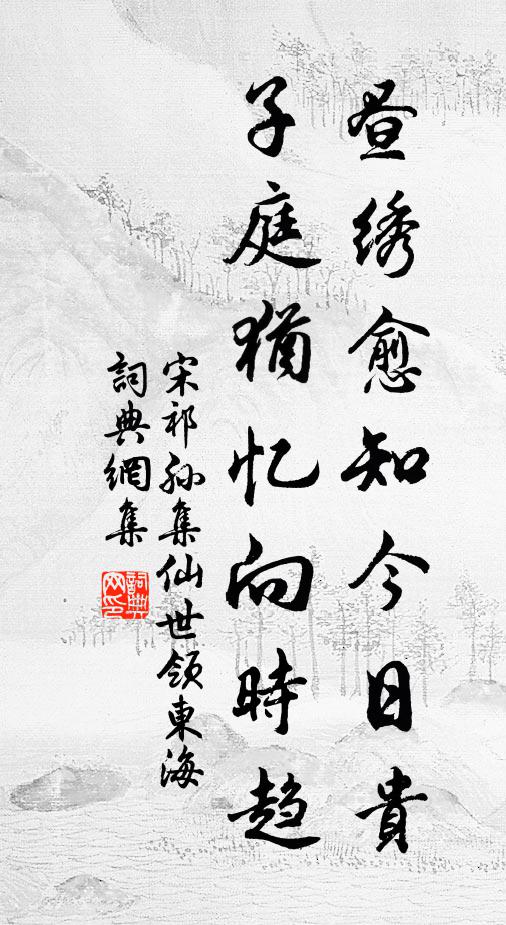 昼绣愈知今日貴
子庭猶忆向時趋
宋祁孙集仙世领東海
詞典網集
詞典网印